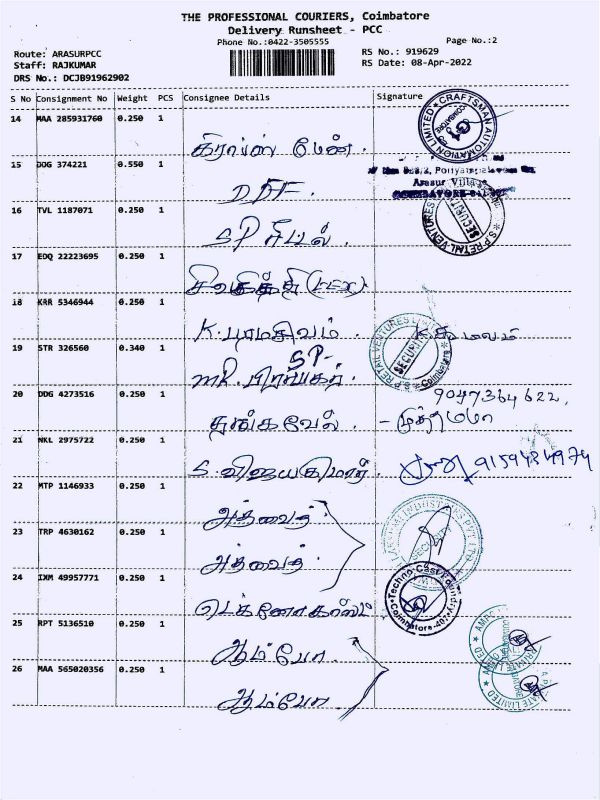 THE PROFESSIONAL COURIERS, Coimbatore
Delivery Runsheet - PCC
Phone No.:0422-3505555
Page No.:2
Route: ARASURPCC
RS No.: 919629
Staff: RAJKUMAR
RS Date: 08-Apr-2022
DRS No.: DCJB91962902
S No Consignment No Weight PCS Consignee Details Signature
14 MAA 285931760 0.250 1
CRAFTSMAN AUTOMATION LIMITED
15 DDG 374221 0.550 1
Arasur Village
16 TVL 1187071 0.250 1
SP
S.P RETAIL VENTURES
SECURITY
17 EDQ 22223695 0.250 1
18 KRR 5346944 0.250 1
K. பரமசிவம்
K. கமலம்
S.P RETAIL VENTURES LIMITED
SECURITY
Coimbatore
19 STR 326560 0.340 1
SP-
MR. பிரபாகர்
20 DDG 4273516 0.250 1
9047364622,
தங்கவேல் - முத்தம்மா
21 NKL 2975722 0.250 1
S. விஜயகுமார். 9159484974
22 MTP 1146933 0.250 1
அத்வைத்
23 TRP 4630162 0.250 1
LAKSHMI INDUSTRIES PVT LTD
SECURITY
அத்வைத்
24 IXM 49957771 0.250 1
டெக்னோகாஸ்ட்
Techno Cast Foundry
Coimbatore-407
25 RPT 5136510 0.250 1
ஆம்போ
26 MAA 565020356 0.250 1
ஆம்போ
PRIVATE LIMITED